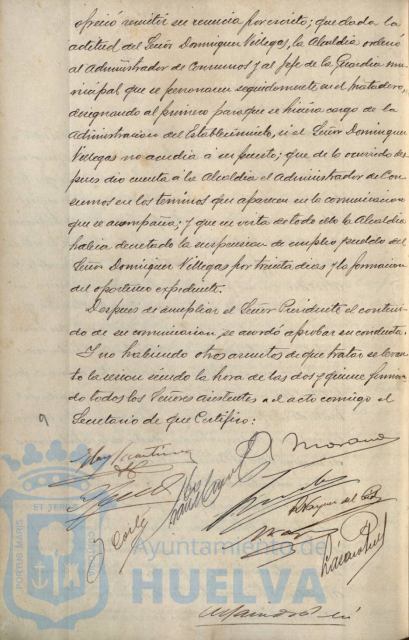 ofreció remitir su renuncia por escrito; que dada la
actitud del Señor Dominguez Villegas, la Alcaldía ordenó
al Administrador de Consumos y al Jefe de la Guardia mu-
nicipal que se personasen seguidamente en el matadero,
designando al primero para que se hiciera cargo de la
Administracion del Establecimiento, si el Señor Dominguez
Villegas no acudia á su puesto; que de lo ocurrido des-
pues dió cuenta á la Alcaldía el Administrador de Con-
sumos en los términos que aparecen en la comunicacion
que se acompaña; y que en vista de todo ello la Alcaldía
habia decretado la suspension de empleo y sueldo del
Señor Dominguez Villegas por treinta dias y la formacion
del oportuno expediente.
Despues de ampliar el Señor Presidente el conteni-
do de su comunicacion, se acordó aprobar su conducta.
Y no habiendo otros asuntos de que tratar se levan-
tó la sesion siendo la hora de las dos y quince firman-
do todos los Señores asistentes al acto conmigo el
Secretario de que Certifico:
Morano
J. Cortés
PORTUS MARIS
ET TERRAE
Ayuntamiento de
HUELVA